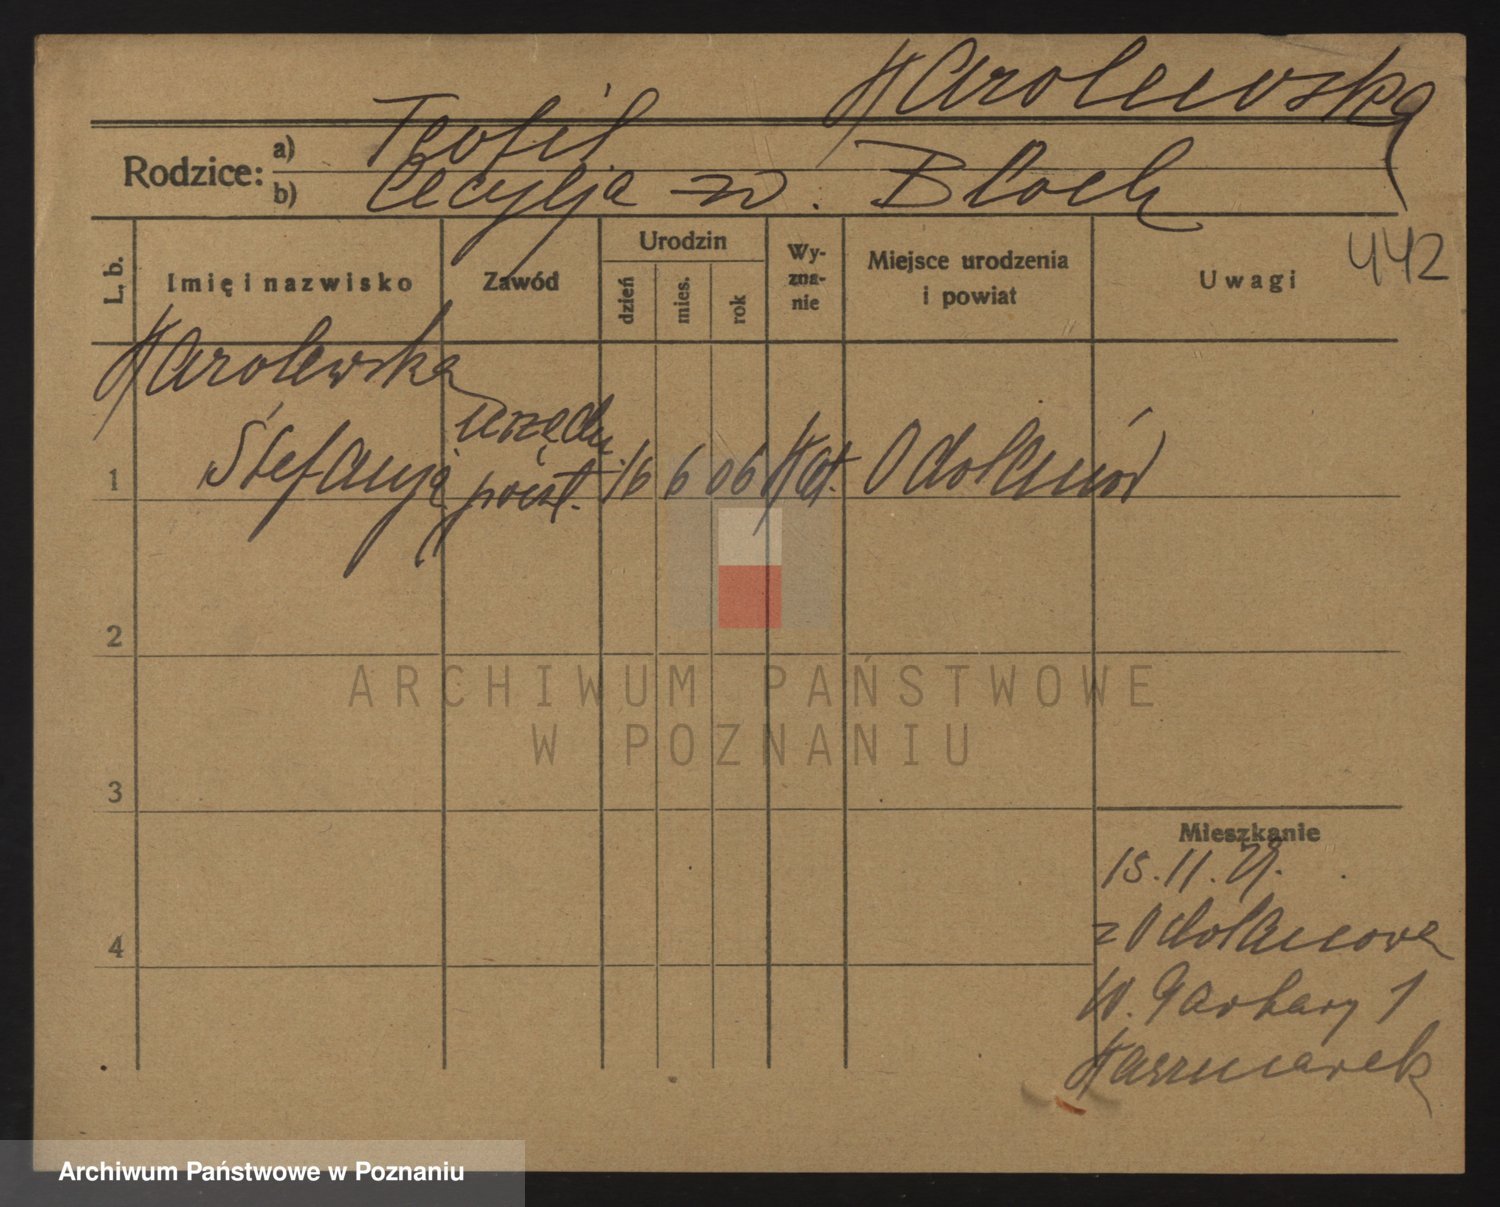 Karolewska
Rodzice: a) Teofil
b) Cecylja zd. Bloch
442
L. b.
Imię i nazwisko
Zawód
Urodzin
dzień
mies.
rok
Wy-
zna-
nie
Miejsce urodzenia
i powiat
Uwagi
Karolewska
Stefanja
urzędn.
poczt.
1
16
6
06
Kat.
Odolanów
2
ARCHIWUM PAŃSTWOWE
W POZNANIU
3
Mieszkanie
15.11.29.
z Odolanowa
4
W. Garbary 1
Kaczmarek
Archiwum Państwowe w Poznaniu